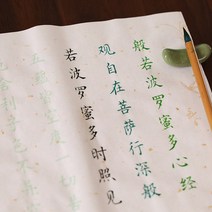 般若波罗蜜多心经
观自在菩萨行深般
若波罗蜜多时照见